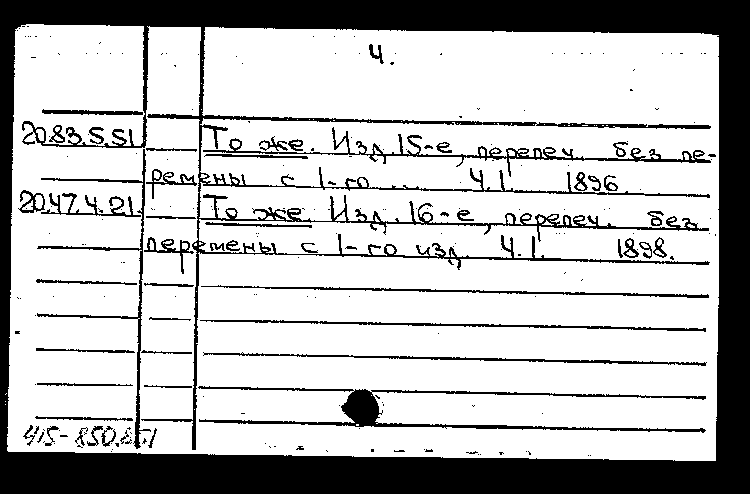 4.
20.83.5.51. То же. Изд. 15-е, перепеч. без пе-
ремены с 1-го ... Ч.1. 1896.
20.47.4.21. То же. Изд. 16-е, перепеч. без
перемены с 1-го изд. Ч.1. 1898.